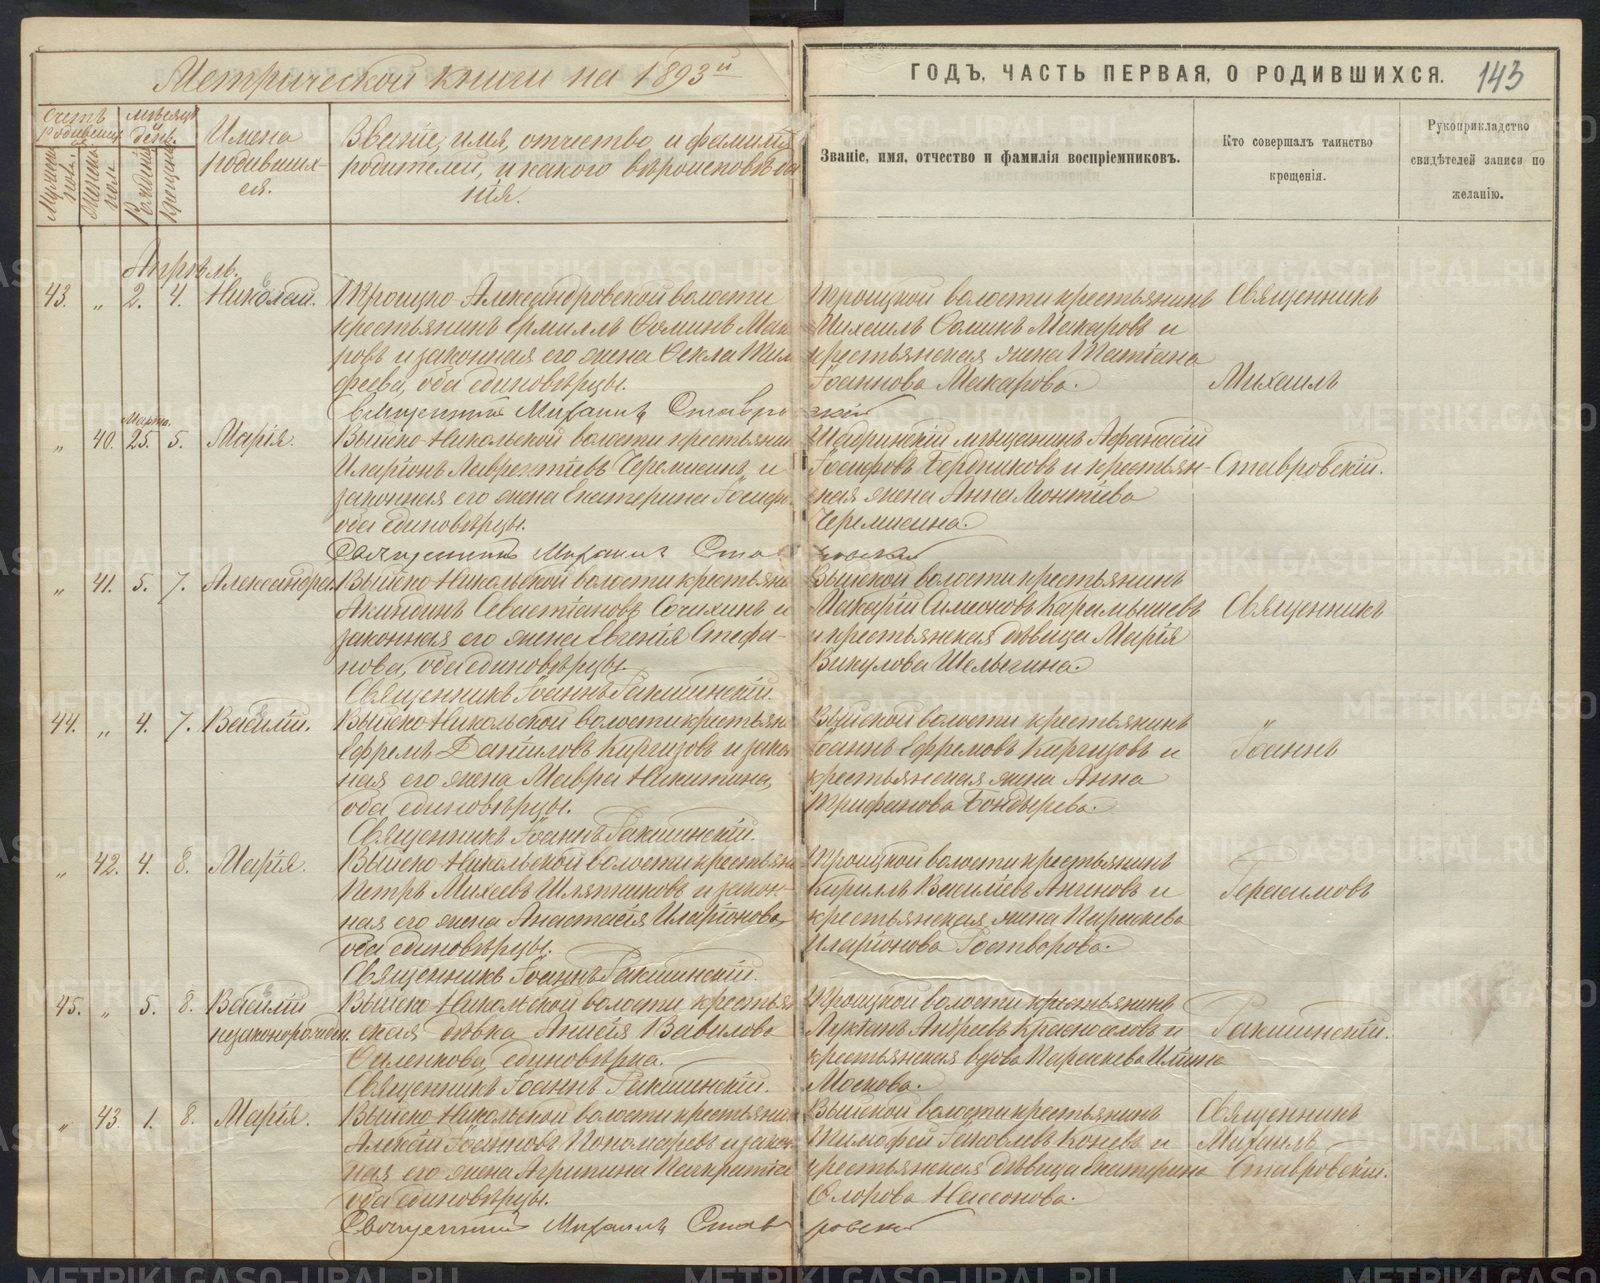 Метрической книги на 1893й
ГОДЪ, ЧАСТЬ ПЕРВАЯ, О РОДИВШИХСЯ.
143
Счетъ родившихся
Мѣсяцъ и день.
Мужеска пола.
Женска пола.
Рожденія
Крещенія
Имена родившихся.
Званіе, имя, отчество и фамилія
родителей, и какого вѣроисповѣда
нія.
Званіе, имя, отчество и фамилія воспріемниковъ.
Кто совершалъ таинство
крещенія.
Рукоприкладство
свидѣтелей записи по
желанію.
Апрѣль.
43. „ 2. 4. Николай.
Троицко-Александровской волости
крестьянинъ Ермиллъ Ѳоминъ Мака
ровъ и законная его жена Ѳекла Тим
ѳеева, оба единовѣрцы.
Священникъ Михаилъ Ставровскій
Троицкой волости крестьянинъ
Михаилъ Ѳоминъ Макаровъ и
крестьянская жена Татіана
Іоаннова Макарова.
Священникъ
Михаилъ
Ставровскій.
„ 40. Марта. 25. 5. Марія.
Выйско-Никольской волости крестьянин
Иларіонъ Лаврентіевъ Черемисинъ и
законная его жена Екатерина Іосифо
оба единовѣрцы.
Священникъ Михаилъ Ставровскій
Шадринскій мѣщанинъ Аѳанасій
Іосифовъ Бердниковъ и крестьян-
ская жена Анна Леонтіева
Черемисина.
„ 41. 5. 7. Александра.
Выйско-Никольской волости крестьяни
Акиндинъ Севастіановъ Сочихинъ и
законная его жена Евгенія Стефа-
нова, оба единовѣрцы.
Священникъ Іоаннъ Ракшинскій
Выйской волости крестьянинъ
Макарій Симеоновъ Карамышевъ
и крестьянская дѣвица Марія
Викулова Шелыгина.
Священникъ
„
Іоаннъ
Герасимовъ
Ракшинскій.
44. „ 4. 7. Василій.
Выйско-Никольской волости крестьян
Ефремъ Даниловъ Киргизовъ и закон
ная его жена Мавра Никитина,
оба единовѣрцы.
Священникъ Іоаннъ Ракшинскій.
Выйской волости крестьянинъ
Іоаннъ Ефремовъ Киргизовъ и
крестьянская жена Анна
Трифанова Бондырева.
„ 42. 4. 8. Марія.
Выйско-Никольской волости крестьян
Петръ Михеевъ Шляпниковъ и закон-
ная его жена Анастасія Иларіонова,
оба единовѣрцы.
Священникъ Іоаннъ Ракшинскій.
Троицкой волости крестьянинъ
Кириллъ Василіевъ Аниновъ и
крестьянская жена Параскева
Иларіонова Растворова.
45. „ 5. 8. Василій
незаконорожден.
Выйско-Никольской волости крестья
нская дѣвка Анисія Вавилова
единовѣрка.
Священникъ Іоаннъ Ракшинскій.
Троицкой волости крестьянинъ
Лукіанъ Андреевъ и
крестьянская вдова Параскева Ильина
Москова.
„ 43. 1. 8. Марія.
Выйско-Никольской волости крестьянин
Алексій Іоанновъ Пономаревъ и закон
ная его жена Агрипина Панкратіева
оба единовѣрцы.
Священникъ Михаилъ Ставровскій
Выйской волости крестьянинъ
Тимоѳей Іаковлевъ Коневъ и
крестьянская дѣвица Екатерина
Флорова Насонова.
Священникъ
Михаилъ
Ставровскій.
METRIKI.GASO-URAL.RU